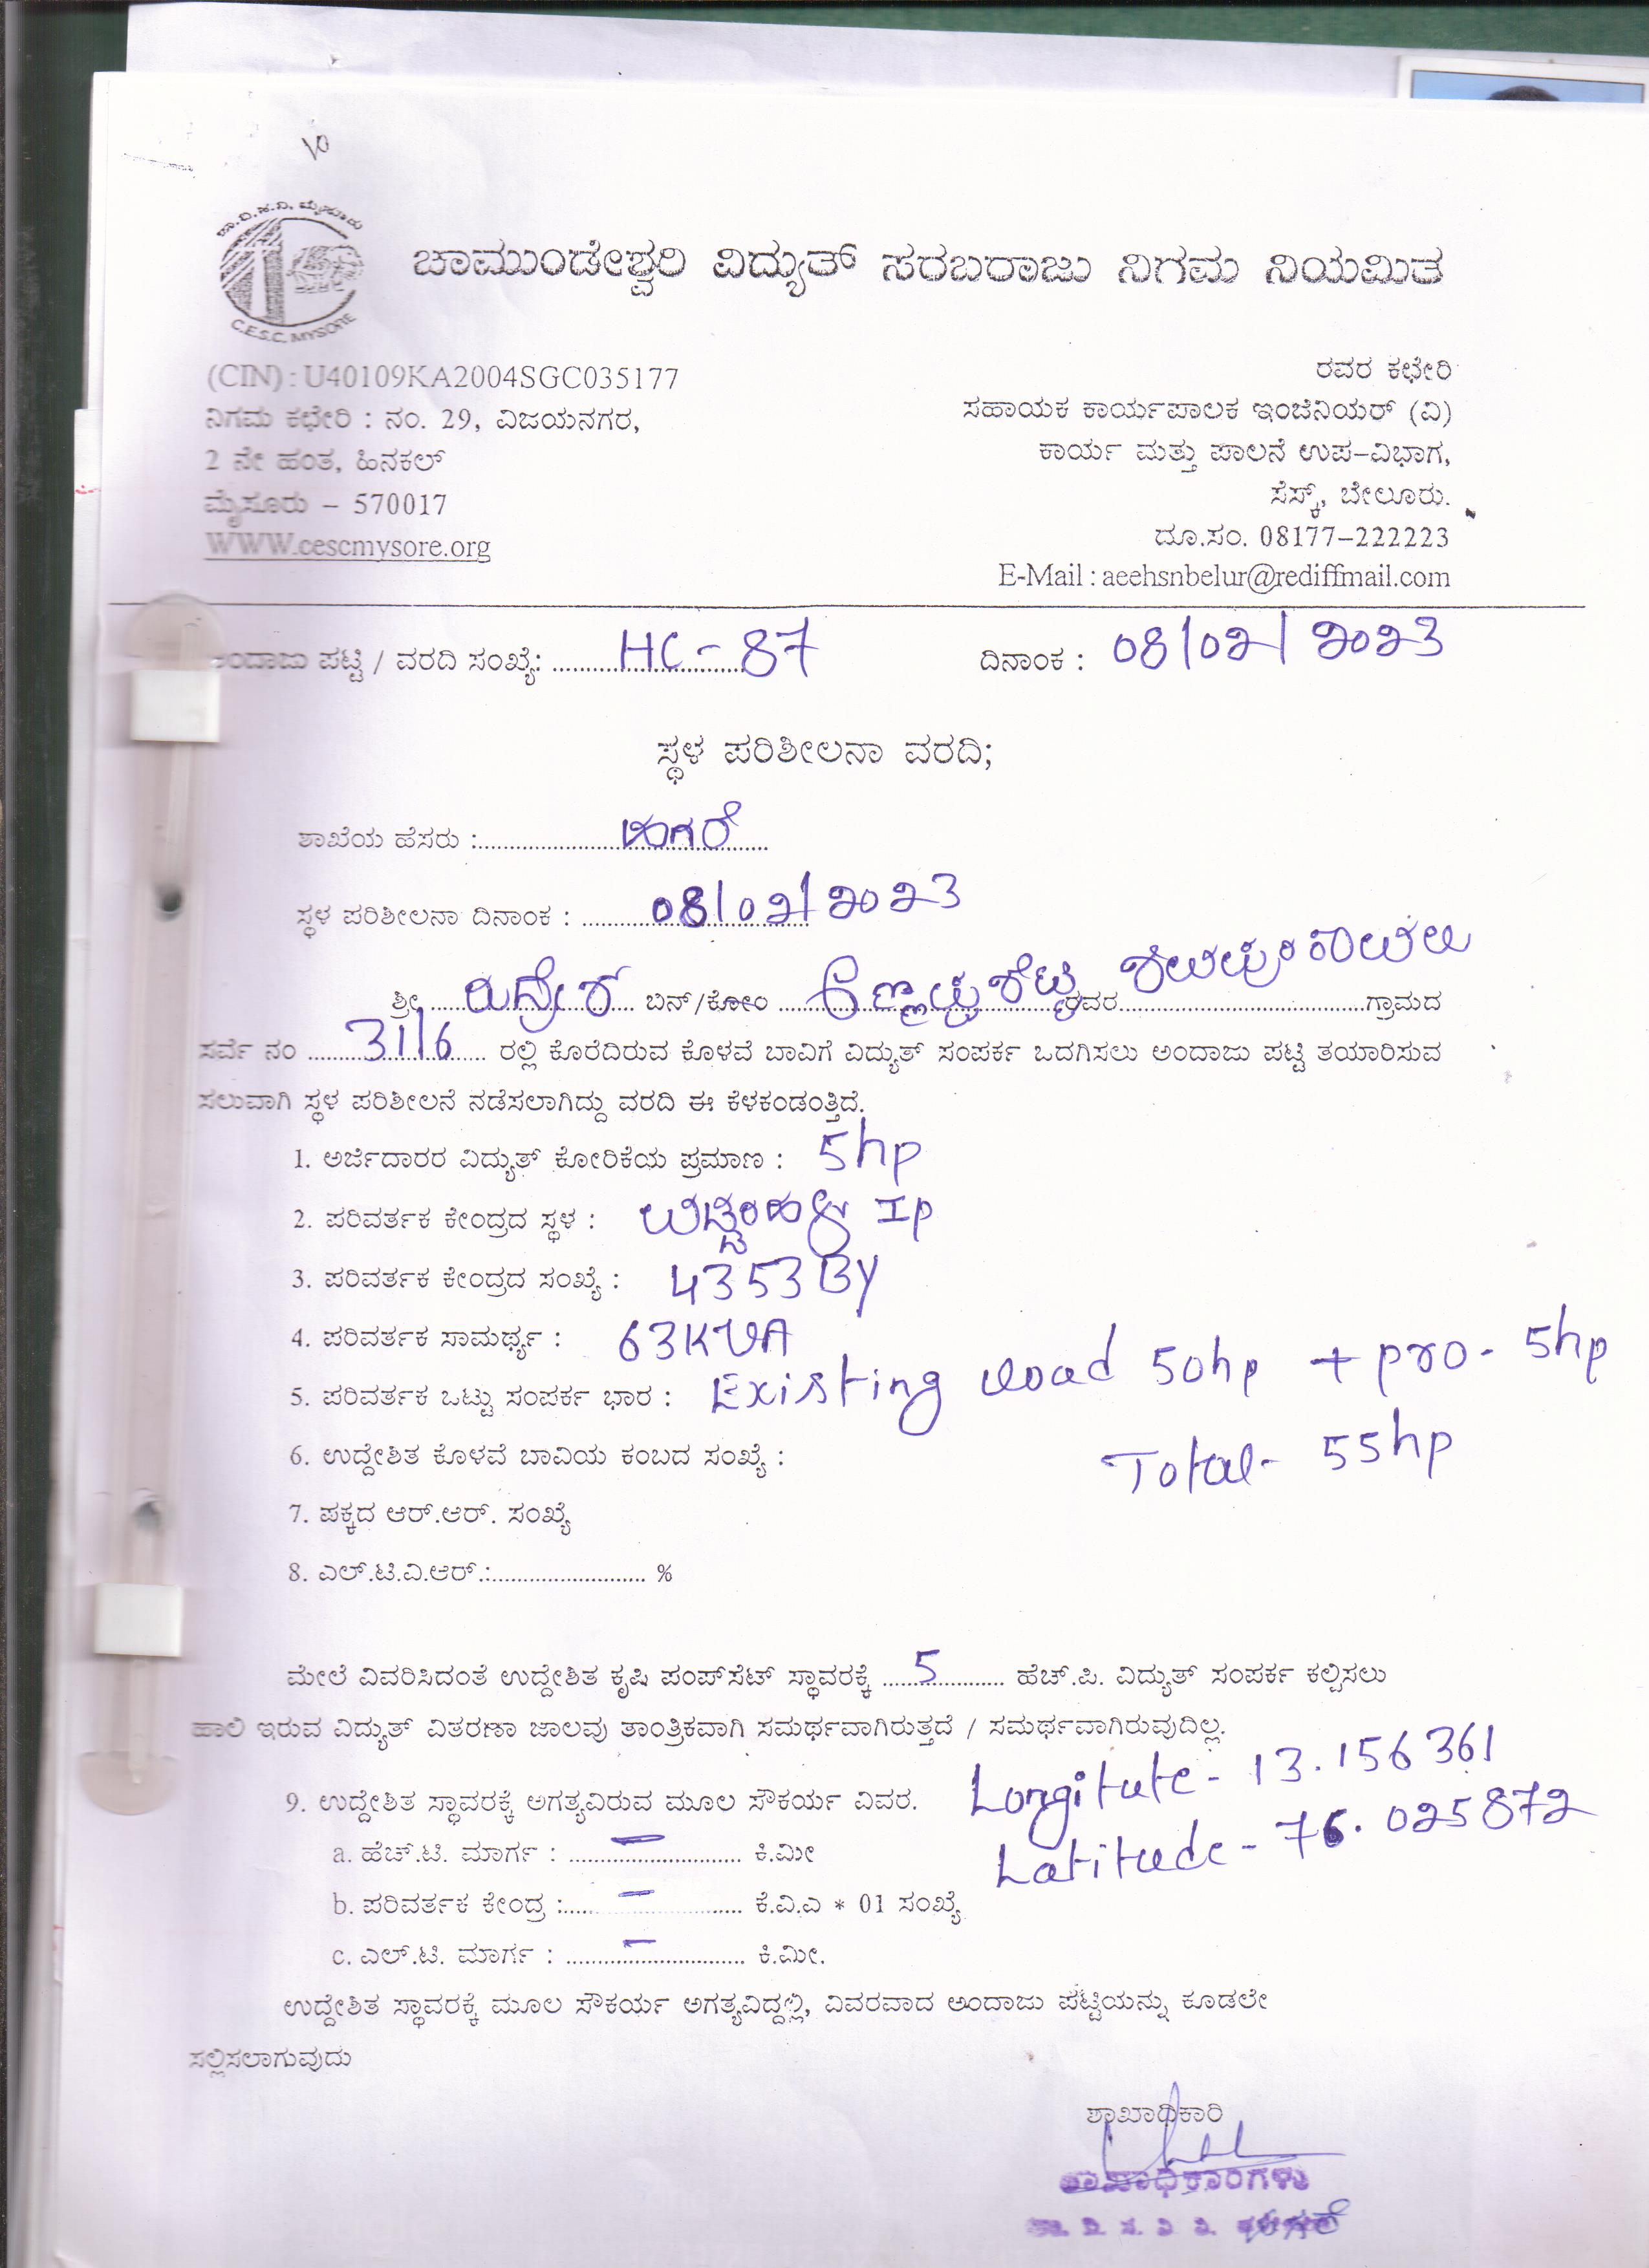 10
ಚಾ.ವಿ.ಸ.ನಿ. ಮೈಸೂರು
C.E.S.C. MYSORE
ಚಾಮುಂಡೇಶ್ವರಿ ವಿದ್ಯುತ್ ಸರಬರಾಜು ನಿಗಮ ನಿಯಮಿತ
(CIN) : U40109KA2004SGC035177
ನಿಗಮ ಕಛೇರಿ : ನಂ. 29, ವಿಜಯನಗರ,
2 ನೇ ಹಂತ, ಹಿನಕಲ್
ಮೈಸೂರು – 570017
WWW.cescmysore.org
ರವರ ಕಛೇರಿ
ಸಹಾಯಕ ಕಾರ್ಯಪಾಲಕ ಇಂಜಿನಿಯರ್ (ವಿ)
ಕಾರ್ಯ ಮತ್ತು ಪಾಲನೆ ಉಪ-ವಿಭಾಗ,
ಸೆಸ್ಕ್, ಬೇಲೂರು.
ದೂ.ಸಂ. 08177-222223
E-Mail : aeehsnbelur@rediffmail.com
ಅಂದಾಜು ಪಟ್ಟಿ / ವರದಿ ಸಂಖ್ಯೆ: HC-87 ದಿನಾಂಕ : 08/02/2023
ಸ್ಥಳ ಪರಿಶೀಲನಾ ವರದಿ;
ಶಾಖೆಯ ಹೆಸರು :
ಸ್ಥಳ ಪರಿಶೀಲನಾ ದಿನಾಂಕ : 08/02/2023
ಶ್ರೀ ಬಿನ್/ಕೋಂ ರವರ ಗ್ರಾಮದ
ಸರ್ವೆ ನಂ 31/6 ರಲ್ಲಿ ಕೊರೆದಿರುವ ಕೊಳವೆ ಬಾವಿಗೆ ವಿದ್ಯುತ್ ಸಂಪರ್ಕ ಒದಗಿಸಲು ಅಂದಾಜು ಪಟ್ಟಿ ತಯಾರಿಸುವ
ಸಲುವಾಗಿ ಸ್ಥಳ ಪರಿಶೀಲನೆ ನಡೆಸಲಾಗಿದ್ದು ವರದಿ ಈ ಕೆಳಕಂಡಂತ್ತಿದೆ.
1. ಅರ್ಜಿದಾರರ ವಿದ್ಯುತ್ ಕೋರಿಕೆಯ ಪ್ರಮಾಣ : 5hp
2. ಪರಿವರ್ತಕ ಕೇಂದ್ರದ ಸ್ಥಳ : Ip
3. ಪರಿವರ್ತಕ ಕೇಂದ್ರದ ಸಂಖ್ಯೆ : 4353BY
4. ಪರಿವರ್ತಕ ಸಾಮರ್ಥ್ಯ : 63KVA
5. ಪರಿವರ್ತಕ ಒಟ್ಟು ಸಂಪರ್ಕ ಭಾರ : Existing load 50hp + pro- 5hp
Total- 55hp
6. ಉದ್ದೇಶಿತ ಕೊಳವೆ ಬಾವಿಯ ಕಂಬದ ಸಂಖ್ಯೆ :
7. ಪಕ್ಕದ ಆರ್.ಆರ್. ಸಂಖ್ಯೆ
8. ಎಲ್.ಟಿ.ವಿ.ಆರ್.: %
ಮೇಲೆ ವಿವರಿಸಿದಂತೆ ಉದ್ದೇಶಿತ ಕೃಷಿ ಪಂಪ್‌ಸೆಟ್ ಸ್ಥಾವರಕ್ಕೆ 5 ಹೆಚ್.ಪಿ. ವಿದ್ಯುತ್ ಸಂಪರ್ಕ ಕಲ್ಪಿಸಲು
ಹಾಲಿ ಇರುವ ವಿದ್ಯುತ್ ವಿತರಣಾ ಜಾಲವು ತಾಂತ್ರಿಕವಾಗಿ ಸಮರ್ಥವಾಗಿರುತ್ತದೆ / ಸಮರ್ಥವಾಗಿರುವುದಿಲ್ಲ.
9. ಉದ್ದೇಶಿತ ಸ್ಥಾವರಕ್ಕೆ ಅಗತ್ಯವಿರುವ ಮೂಲ ಸೌಕರ್ಯ ವಿವರ. Longitute- 13.156361
Latitude- 76.025872
a. ಹೆಚ್.ಟಿ. ಮಾರ್ಗ : – ಕಿ.ಮೀ
b. ಪರಿವರ್ತಕ ಕೇಂದ್ರ : – ಕೆ.ವಿ.ಎ * 01 ಸಂಖ್ಯೆ
c. ಎಲ್.ಟಿ. ಮಾರ್ಗ : – ಕಿ.ಮೀ.
ಉದ್ದೇಶಿತ ಸ್ಥಾವರಕ್ಕೆ ಮೂಲ ಸೌಕರ್ಯ ಅಗತ್ಯವಿದ್ದಲ್ಲಿ, ವಿವರವಾದ ಅಂದಾಜು ಪಟ್ಟಿಯನ್ನು ಕೂಡಲೇ
ಸಲ್ಲಿಸಲಾಗುವುದು
ಶಾಖಾಧಿಕಾರಿ
ಶಾಖಾಧಿಕಾರಿಗಳು